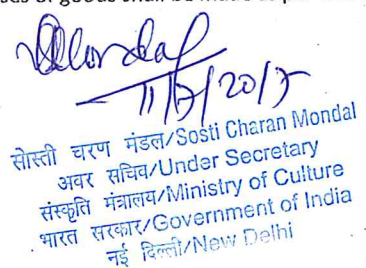 of goods shall be made
Mondal
सोस्ती चरण मंडल/Sosti Charan Mondal
अवर सचिव/Under Secretary
संस्कृति मंत्रालय/Ministry of Culture
भारत सरकार/Government of India
नई दिल्ली/New Delhi